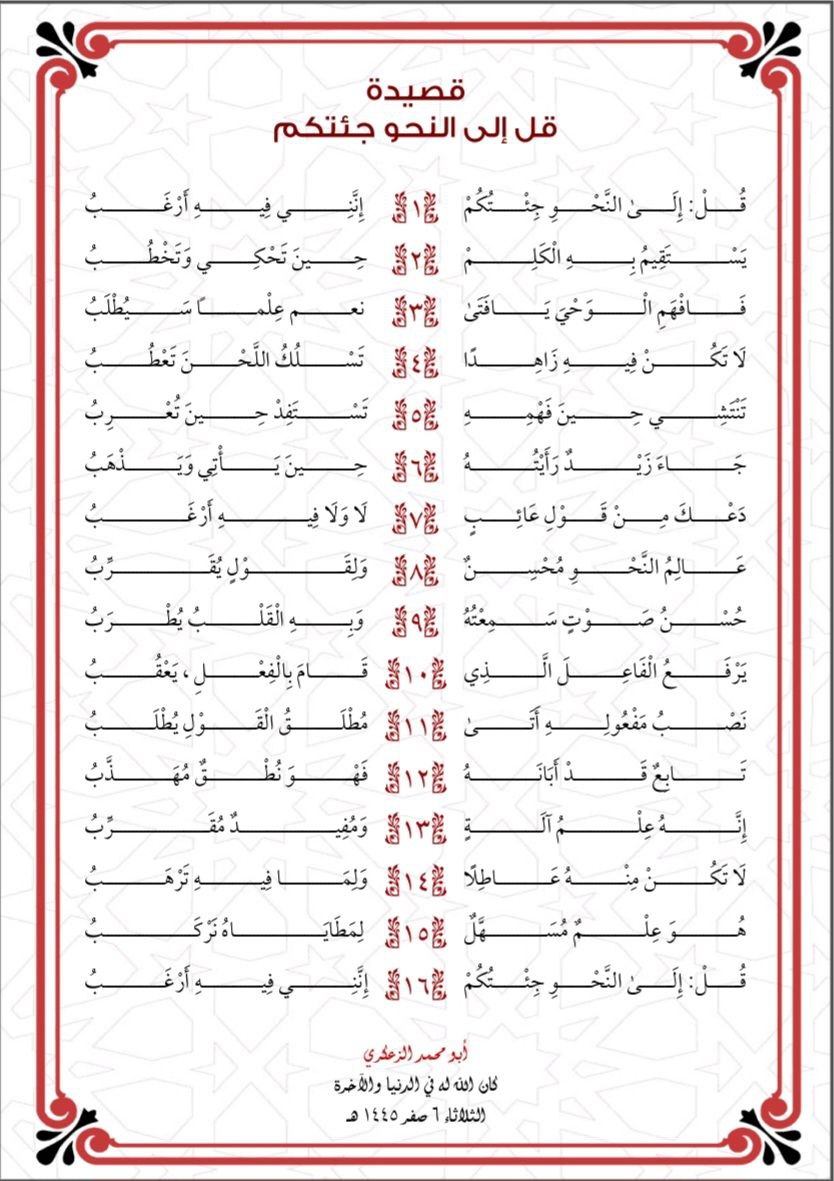 قصيدة
قل إلى النحو جئتكم
قُلْ: إِلَىٰ النَّحْوِ جِئْتُكُمْ ١ إِنَّنِي فِيهِ أَرْغَبُ
يَسْتَقِيمُ بِهِ الْكَلِمْ ٢ حِينَ تَحْكِي وَتَخْطُبُ
فَافْهَمِ الْوَحْيَ يَافَتَىٰ ٣ نعم عِلْمًا سَيُطْلَبُ
لَا تَكُنْ فِيهِ زَاهِدًا ٤ تَسْلُكُ اللَّحْنَ تَعْطُبُ
تَنْتَشِي حِينَ فَهْمِهِ ٥ تَسْتَفِدْ حِينَ تُعْرِبُ
جَاءَ زَيْدٌ رَأَيْتُهُ ٦ حِينَ يَأْتِي وَيَذْهَبُ
دَعْكَ مِنْ قَوْلِ عَائِبٍ ٧ لَا وَلَا فِيهِ أَرْغَبُ
عَالِمُ النَّحْوِ مُحْسِنٌ ٨ وَلِقَوْلٍ يُقَرِّبُ
حُسْنُ صَوْتٍ سَمِعْتُهُ ٩ وَبِهِ الْقَلْبُ يُطْرَبُ
يَرْفَعُ الْفَاعِلَ الَّذِي ١٠ قَامَ بِالْفِعْلِ، يَعْقُبُ
نَصْبُ مَفْعُولِهِ أَتَىٰ ١١ مُطْلَقُ الْقَوْلِ يُطْلَبُ
تَابِعٌ قَدْ أَبَانَهُ ١٢ فَهْوَ نُطْقٌ مُهَذَّبُ
إِنَّهُ عِلْمُ آلَةٍ ١٣ وَمُفِيدٌ مُقَرِّبُ
لَا تَكُنْ مِنْهُ عَاطِلًا ١٤ وَلِمَا فِيهِ تَرْهَبُ
هُوَ عِلْمٌ مُسَهَّلٌ ١٥ لِمَطَايَاهُ نَرْكَبُ
قُلْ: إِلَىٰ النَّحْوِ جِئْتُكُمْ ١٦ إِنَّنِي فِيهِ أَرْغَبُ
أبو محمد الزعكري
كان الله له في الدنيا والآخرة
الثلاثاء ٦ صفر ١٤٤٥ هـ